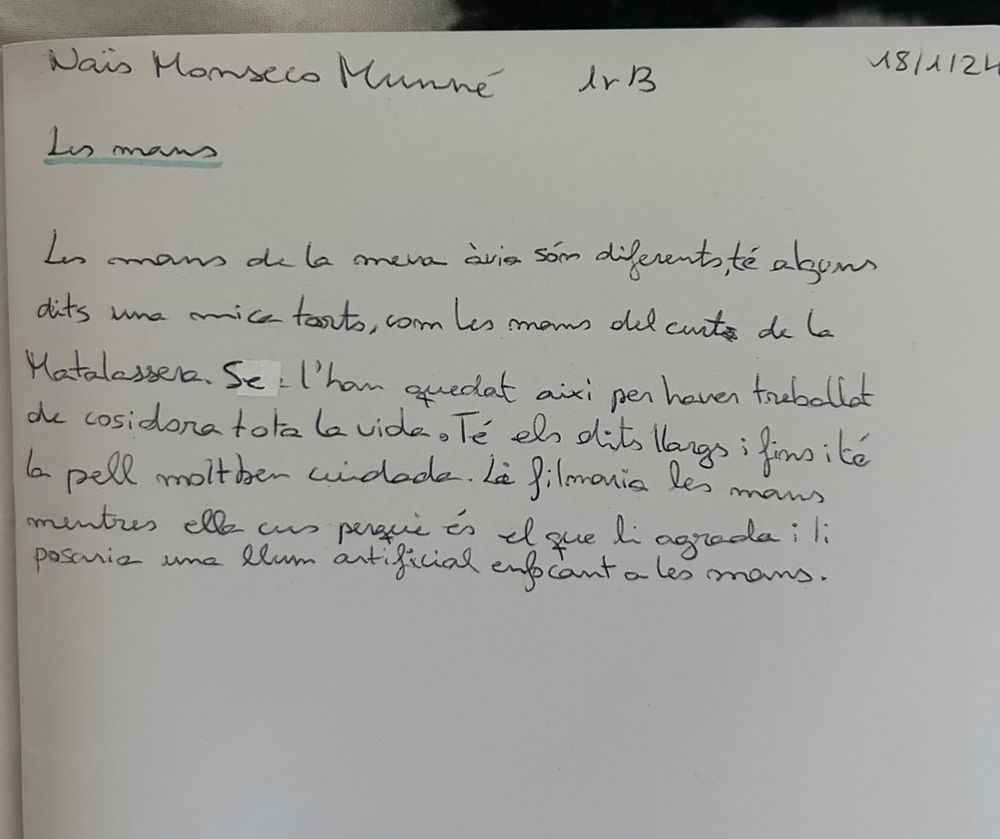 Naïs Monseco Munné 1r B 18/1/24
Les mans
Les mans de la meva àvia són diferents, té alguns
dits una mica torts, com les mans del curt de la
Matalassera. Se l'han quedat aixi per haver treballat
de cosidora tota la vida. Té els dits llargs i fins i té
la pell molt ben cuidada. Li filmaria les mans
mentres ella cus perquè és el que li agrada i li
posaria una llum artificial enfocant a les mans.